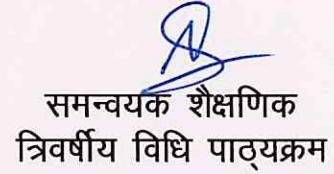 समन्वयक शैक्षणिक
त्रिवर्षीय विधि पाठ्यक्रम